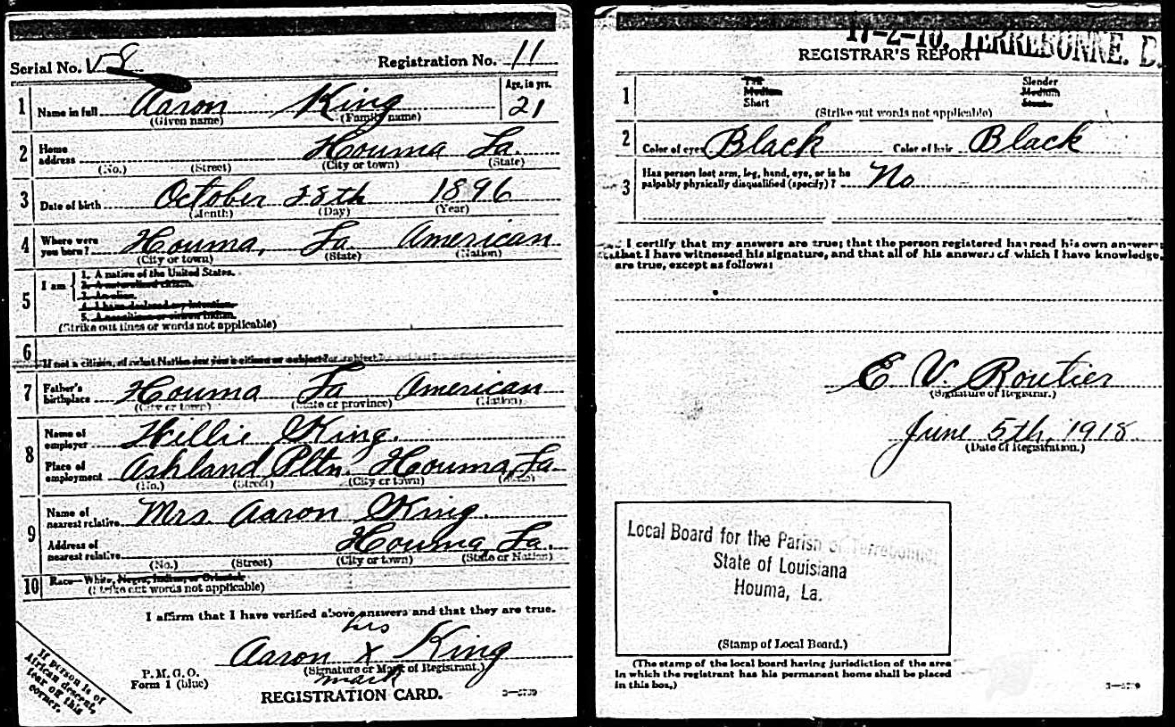 Serial No. V 8 Registration No. 11
1 Name in full Aaron King Age, in yrs. 21
(Given name) (Family name)
2 Home address Houma La.
(No.) (Street) (City or town) (State)
3 Date of birth October 28th 1896
(Month) (Day) (Year)
4 Where were you born? Houma, La American
(City or town) (State) (Nation)
5 I am
1. A native of the United States.
2. A naturalized citizen.
3. An alien.
4. I have declared my intention.
5. A noncitizen or citizen Indian.
(Strike out lines or words not applicable)
6 If not a citizen, of what Nation are you a citizen or subject?
7 Father's birthplace Houma La American
(City or town) (State or province) (Nation)
8 Name of employer Willie King.
Place of employment Ashland Pltn. Houma, La
(No.) (Street) (City or town) (State)
9 Name of nearest relative Mrs. Aaron King
Address of nearest relative Houma La.
(No.) (Street) (City or town) (State or Nation)
10 Race—White, Negro, Indian, or Oriental
(Strike out words not applicable)
I affirm that I have verified above answers and that they are true.
his
Aaron X King
P. M. G. O. (Signature or Mark of Registrant.)
Form 1 (blue) mark
REGISTRATION CARD.
If person is of
African descent,
tear off this
corner.
17-2-10, TERREBONNE.
REGISTRAR'S REPORT
1 Tall Slender
Medium Medium
Short Stout
(Strike out words not applicable)
2 Color of eyes Black Color of hair Black
3 Has person lost arm, leg, hand, eye, or is he
palpably physically disqualified (specify)? No
I certify that my answers are true; that the person registered has read his own answers;
that I have witnessed his signature, and that all of his answers of which I have knowledge
are true, except as follows:
E V. Routier
(Signature of Registrar.)
June 5th, 1918
(Date of Registration.)
Local Board for the Parish of Terrebonne
State of Louisiana
Houma, La.
(Stamp of Local Board.)
(The stamp of the local board having jurisdiction of the area
in which the registrant has his permanent home shall be placed
in this box.)